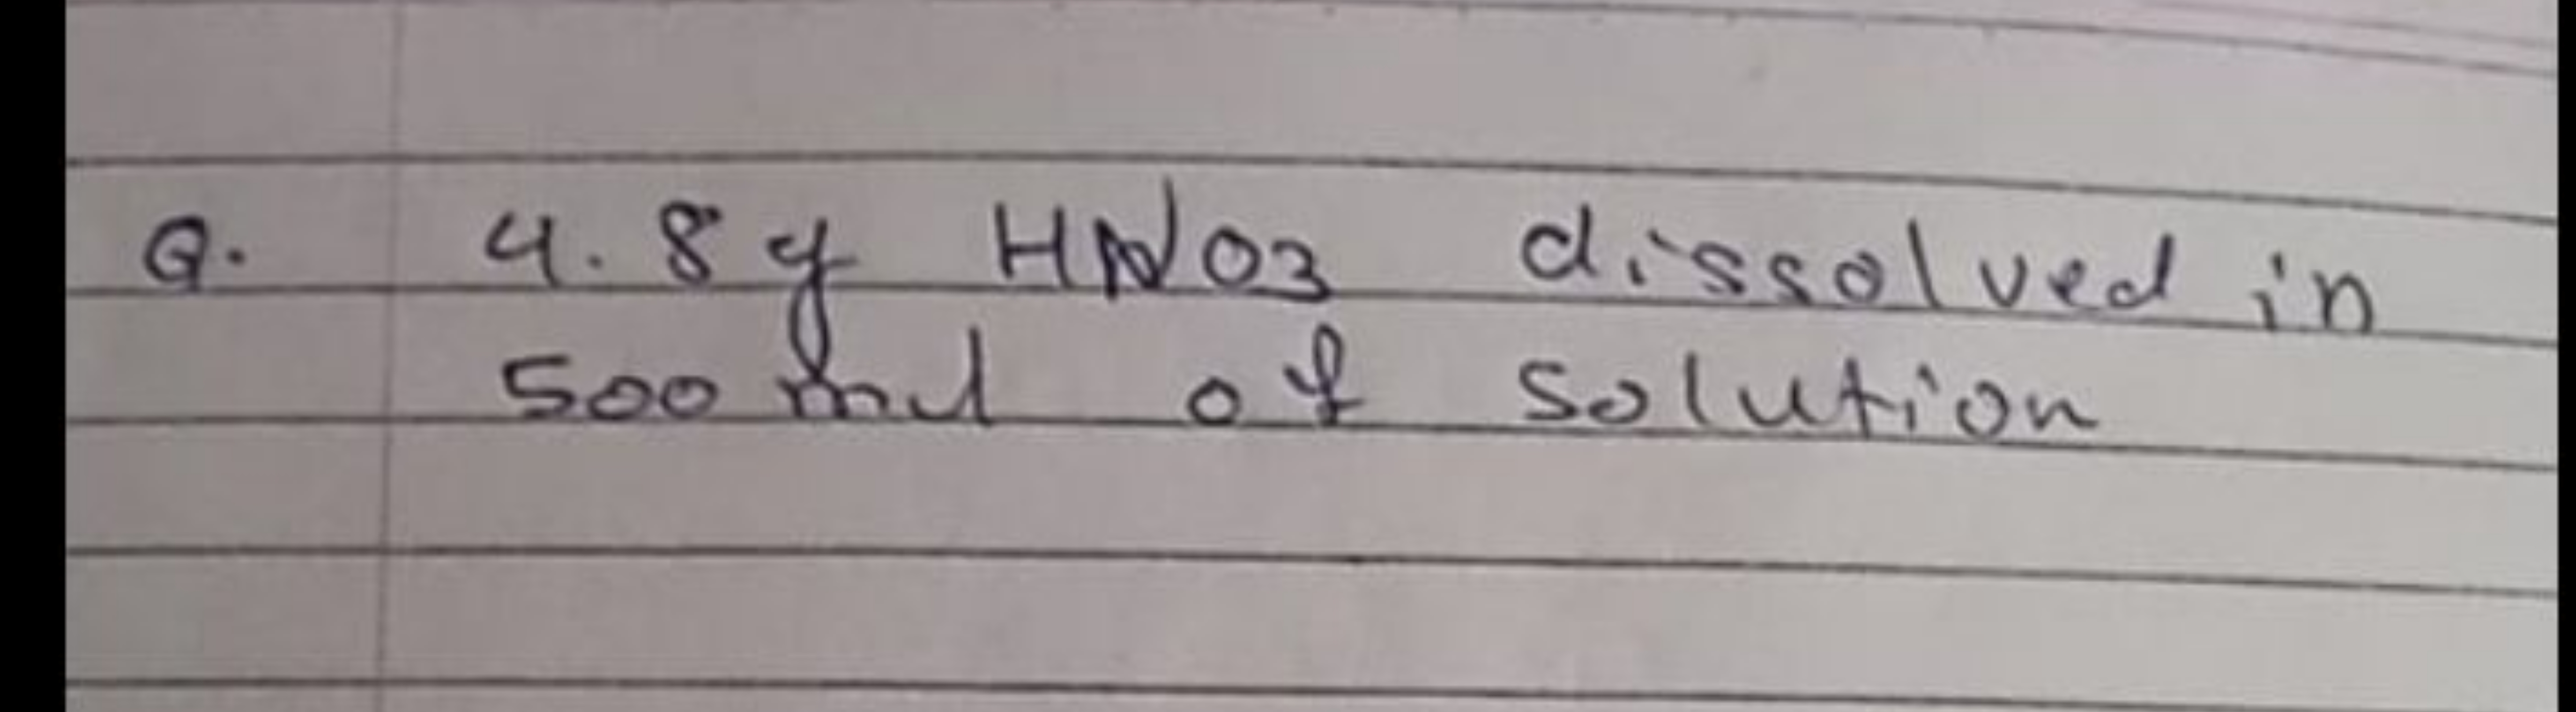 Q. 4.8g HNO3 dissolved in
500 ml of solution